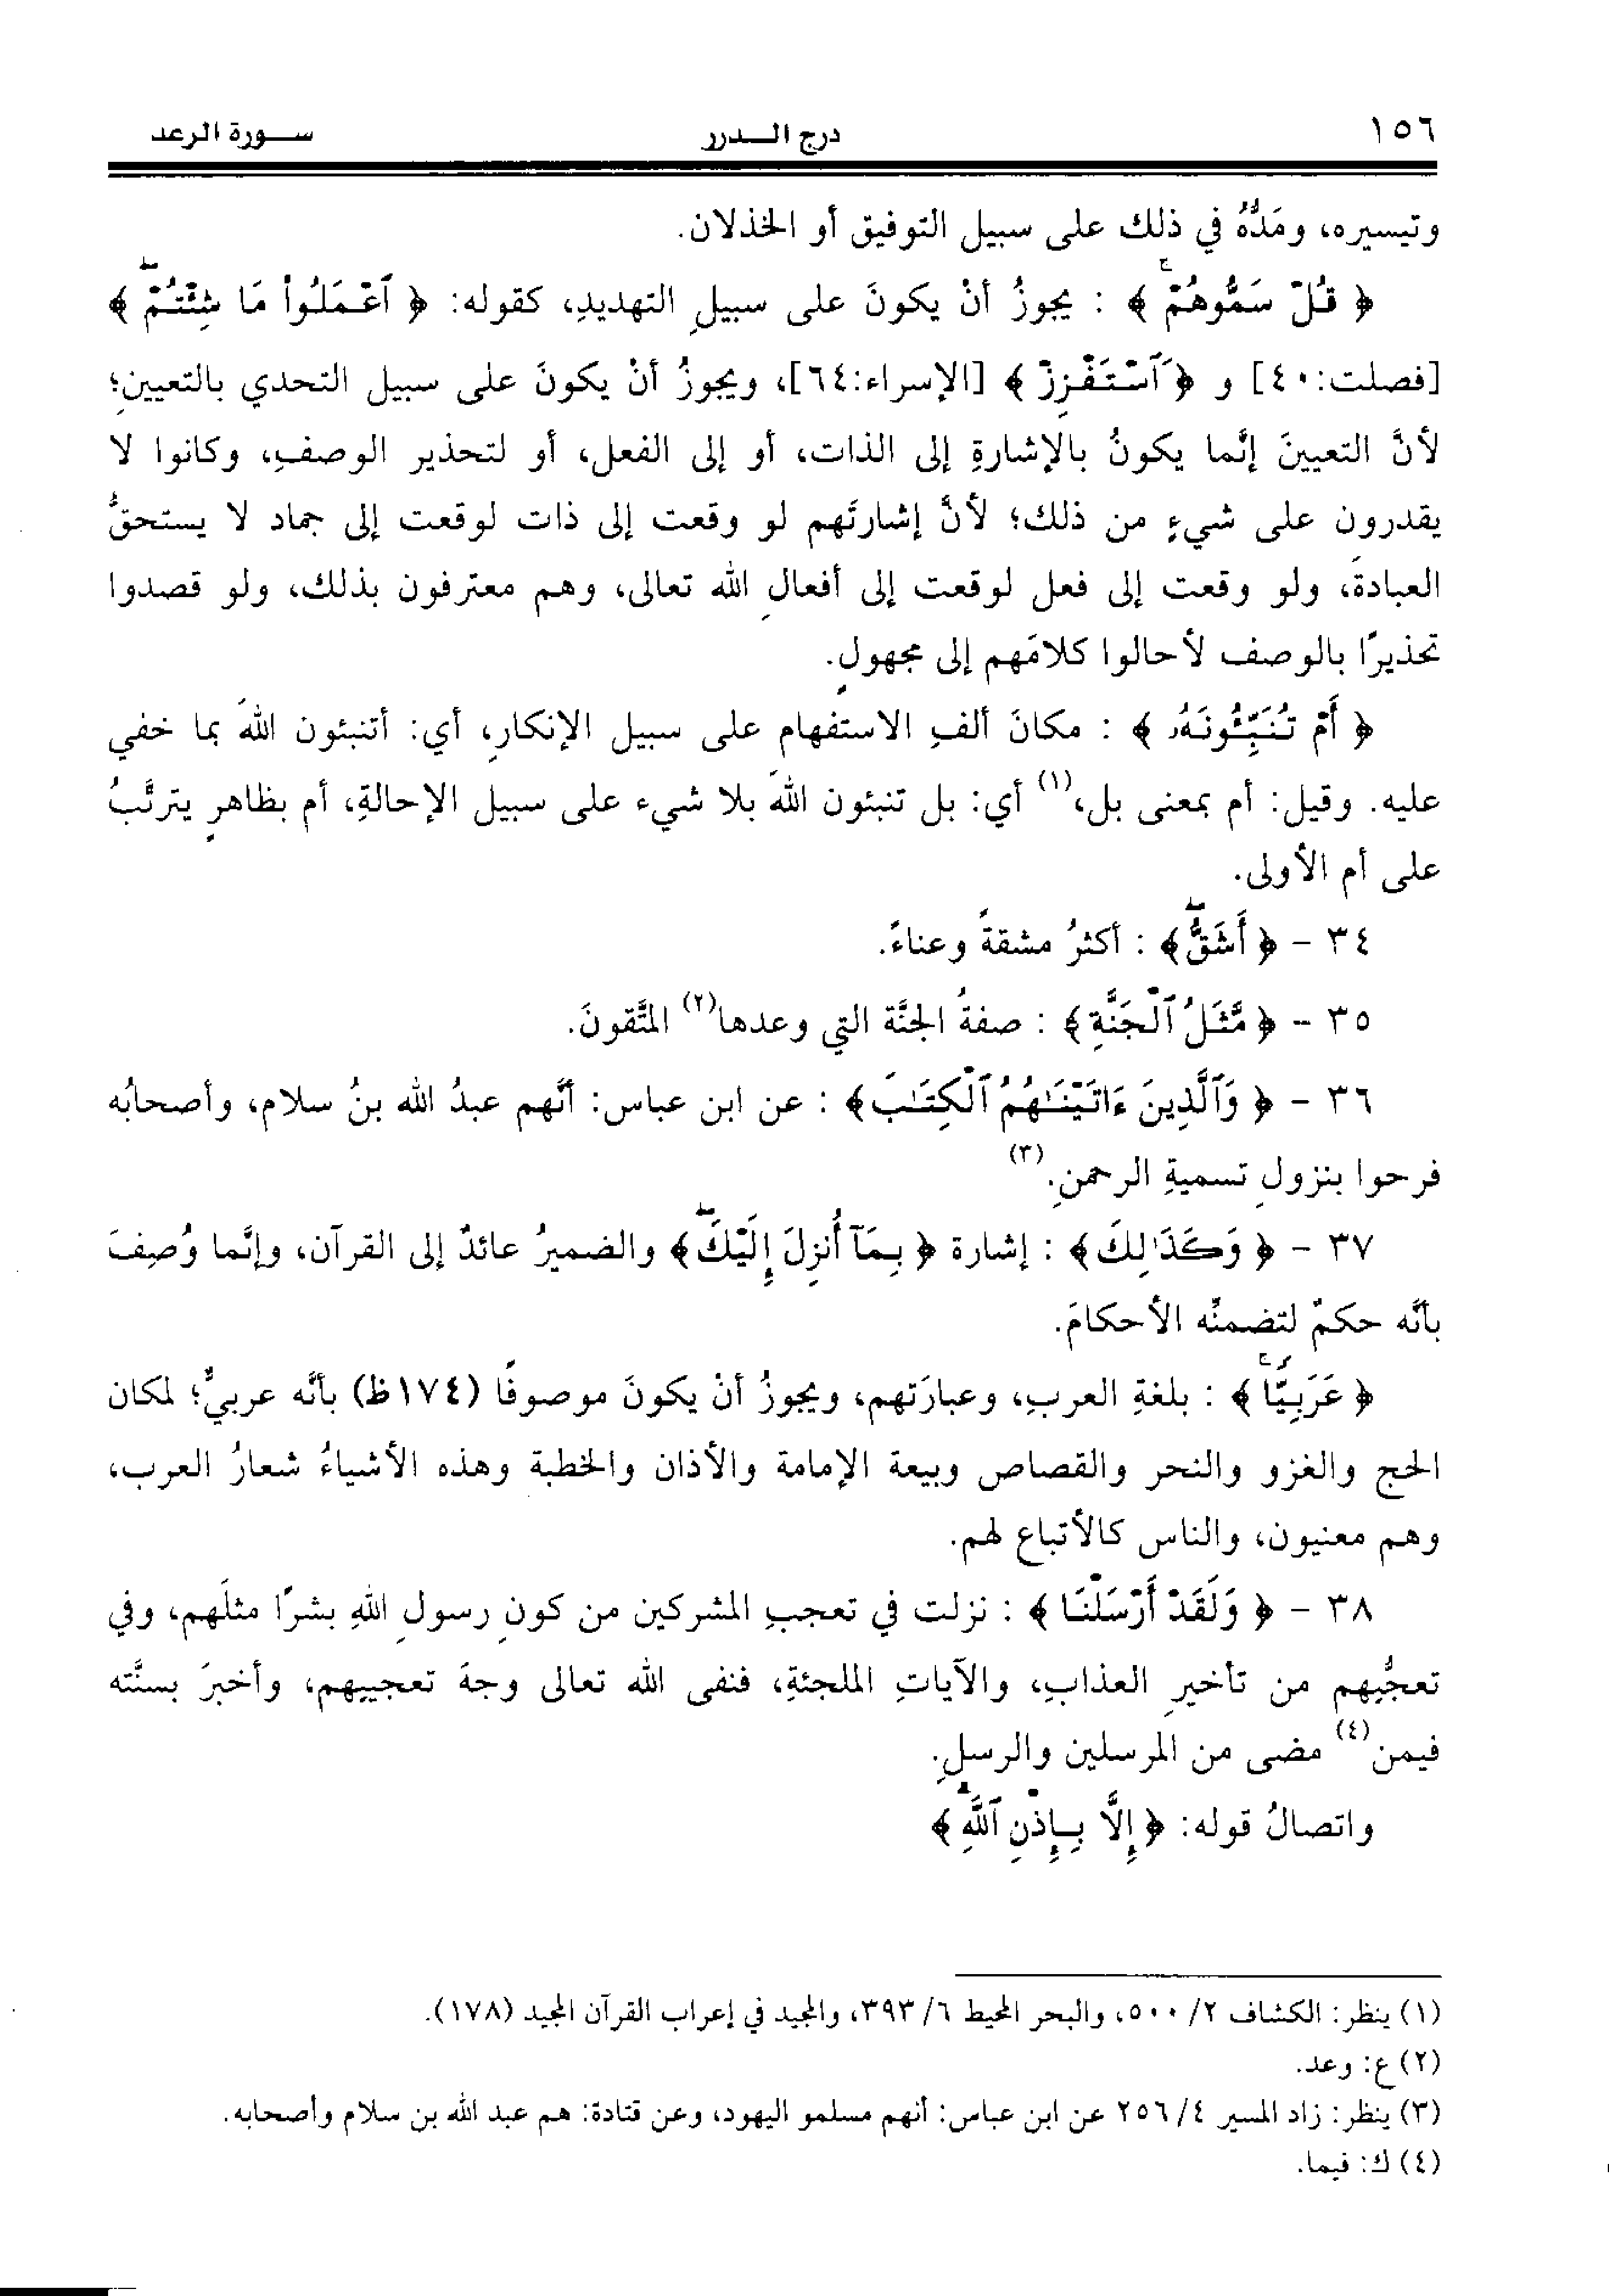 ١٥٦ درج الــدرر ســورة الرعد
وتيسيره، ومَدُّهُ في ذلك على سبيل التوفيق أو الخذلان.
﴿ قُلْ سَمُّوهُمْ ۚ ﴾ : يجوزُ أنْ يكونَ على سبيلِ التهديدِ، كقوله: ﴿ ٱعْمَلُوا۟ مَا شِئْتُمْ ۖ ﴾
[فصلت:٤٠] و ﴿وَٱسْتَفْزِزْ ﴾ [الإسراء:٦٤]، ويجوزُ أنْ يكونَ على سبيل التحدي بالتعيينِ؛
لأنَّ التعيينَ إنَّما يكونُ بالإشارةِ إلى الذات، أو إلى الفعل، أو لتحذير الوصفِ، وكانوا لا
يقدرون على شيءٍ من ذلك؛ لأنَّ إشارتَهم لو وقعت إلى ذات لوقعت إلى جماد لا يستحقُّ
العبادةَ، ولو وقعت إلى فعل لوقعت إلى أفعالِ الله تعالى، وهم معترفون بذلك، ولو قصدوا
تحذيرًا بالوصف لأحالوا كلامَهم إلى مجهولٍ.
﴿ أَمْ تُنَبِّـُٔونَهُۥ ﴾ : مكانَ ألفِ الاستفهام على سبيل الإنكارِ، أي: أتنبئون اللهَ بما خفي
عليه. وقيل: أم بمعنى بل،(١) أي: بل تنبئون اللهَ بلا شيء على سبيل الإحالةِ، أم بظاهرٍ يترتَّبُ
على أم الأولى.
٣٤ - ﴿ أَشَقُّ ۖ﴾ : أكثرُ مشقةً وعناءً.
٣٥ - ﴿ مَّثَلُ ٱلْجَنَّةِ ﴾ : صفةُ الجنَّة التي وعدها(٢) المتَّقونَ.
٣٦ - ﴿ وَٱلَّذِينَ ءَاتَيْنَـٰهُمُ ٱلْكِتَـٰبَ ﴾ : عن ابن عباس: أنَّهم عبدُ الله بنُ سلام، وأصحابُه
فرحوا بنزولِ تسميةِ الرحمنِ.(٣)
٣٧ - ﴿ وَكَذَٰلِكَ ﴾ : إشارة ﴿ بِمَآ أُنزِلَ إِلَيْكَ ۖ ﴾ والضميرُ عائدٌ إلى القرآن، وإنَّما وُصِفَ
بأنَّه حكمٌ لتضمنُّه الأحكامَ.
﴿ عَرَبِيًّا ۚ ﴾ : بلغةِ العربِ، وعبارَتهم، ويجوزُ أنْ يكونَ موصوفًا (١٧٤ظ) بأنَّه عربيٌّ؛ لمكان
الحج والغزو والنحر والقصاص وبيعة الإمامة والأذان والخطبة وهذه الأشياءُ شعارُ العرب،
وهم معنيون، والناس كالأتباع لهم.
٣٨ - ﴿ وَلَقَدْ أَرْسَلْنَا ﴾ : نزلت في تعجبِ المشركين من كونِ رسولِ اللهِ بشرًا مثلَهم، وفي
تعجُّبِهم من تأخيرِ العذابِ، والآياتِ الملجئةِ، فنفى الله تعالى وجهَ تعجبيهم، وأخبرَ بسنَّته
فيمن(٤) مضى من المرسلين والرسلِ.
واتصالُ قوله: ﴿ إِلَّا بِإِذْنِ ٱللَّهِ ﴾
(١) ينظر: الكشاف ٢/ ٥٠٠، والبحر المحيط ٦/ ٣٩٣، والمجيد في إعراب القرآن المجيد (١٧٨).
(٢) ع: وعد.
(٣) ينظر: زاد المسير ٤/ ٢٥٦ عن ابن عباس: أنهم مسلمو اليهود، وعن قتادة: هم عبد الله بن سلام وأصحابه.
(٤) ك: فيما.